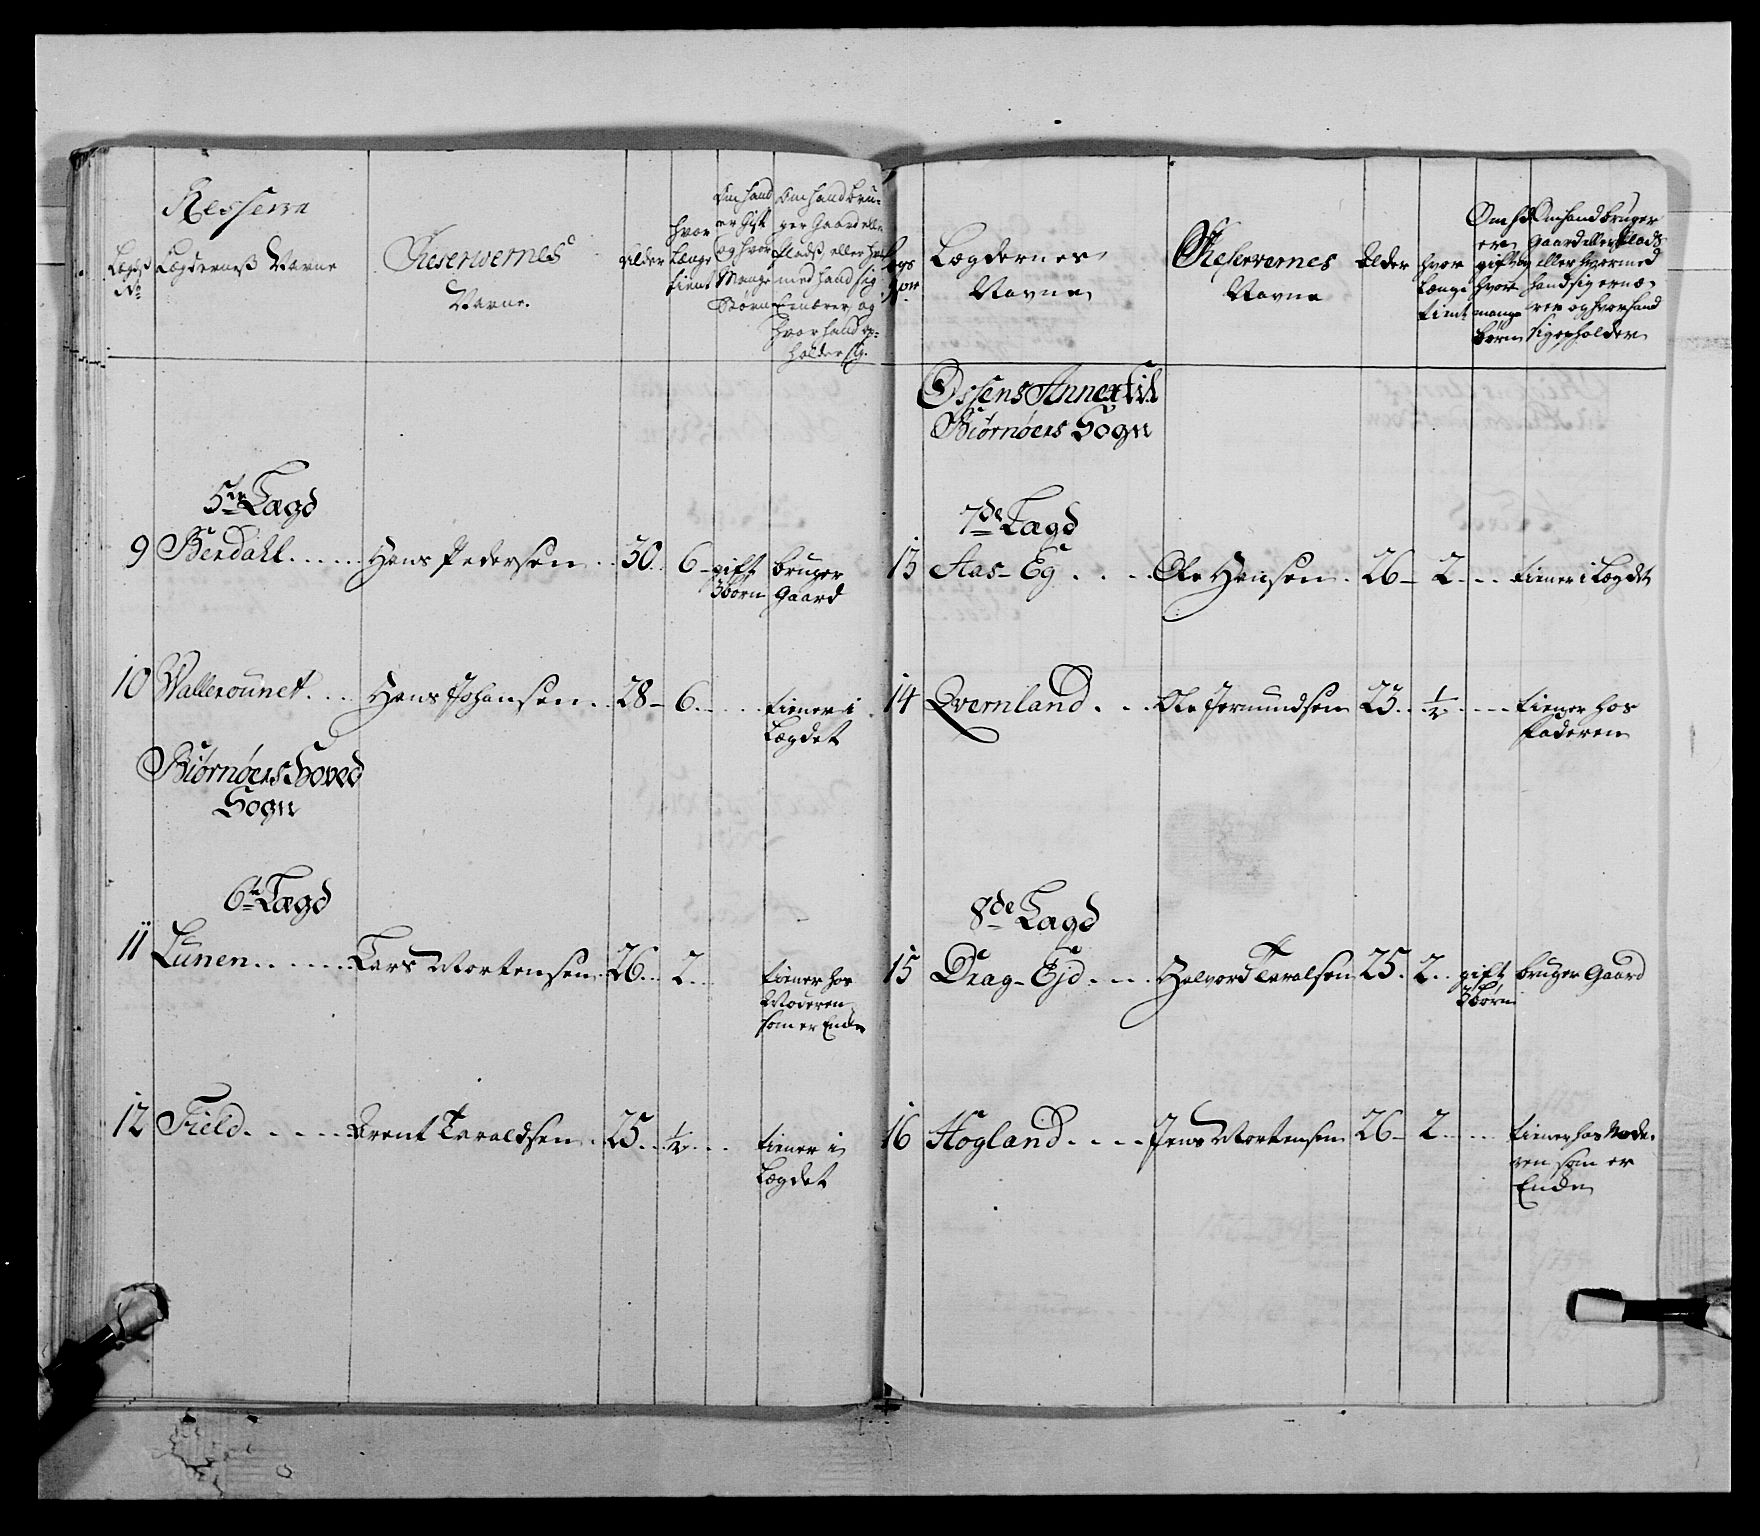 Resserva
Lægds No
Lægderness Navne
Reserwernes Navne.
Alder
hvor længe tient
Om hand er Gift og hvor Mange Børn
Om hand bruger Gaard eller Pladss eller hvor med hand sig Ernærer og hvor hand opholder sig.
5te Lægd
9 Berdahl..... Hans Pedersen.. 30. 6 gift 3 børn bruger Gaard
10 Vallerounet.... Hans Johansen.. 28 - 6.... tiener i Lægdet
Biørnøers Hoved
Sogn
6te Lægd
11 Lunen...... Lars Mortensen. 26... 2... tiener hos Moderen som er Enche
12 Field..... Arent Taraldsen. 25.. 1/2... tiener i Lægdet
Lægdernes Navne
Reservernes Navne
Alder
hvor længe tient
Om hd er gift og hvor mange børn
Om hand bruger Gaard eller Plads eller hvormed hand sig ernærer og hvor hand sig opholder
Ossens Annex til
Biørnøers Sogn
7de Lægd
13 Aas-Eg.... Ole Hansen. 26 - 2.... tiener i Lægdet
14 Qvernland... Ole Jermundsen 23.. 1/2.... tiener hos faderen
8de Lægd
15 Drag-Ejd.... Halvord Taralsen 25. 2.. gift 3 børn bruger Gaard
16 Hogland.... Jens Mortensen 26 - 2.... tiener hos Moderen som er Enche